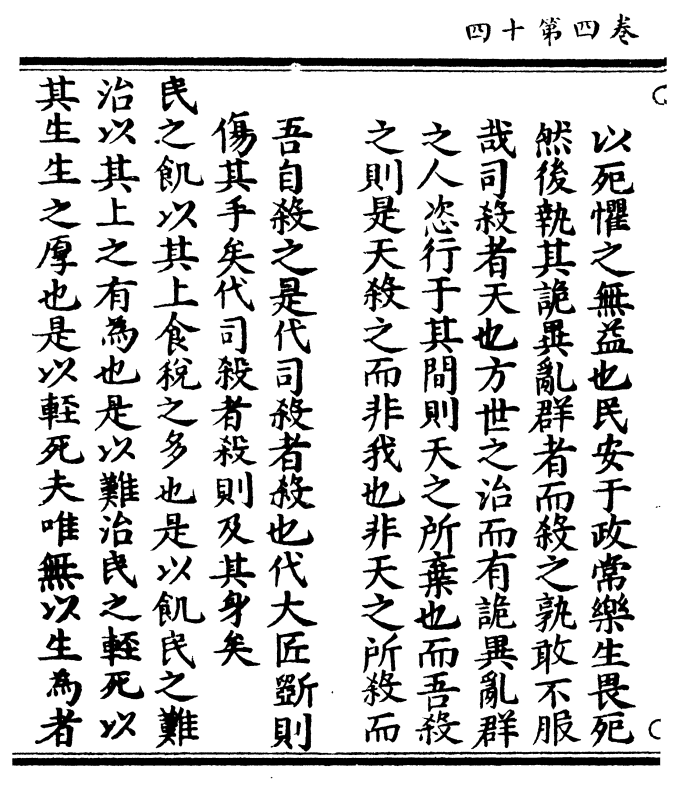 卷四第十四
以死懼之無益也民安于政常樂生畏死
然後執其詭異亂群者而殺之孰敢不服
哉司殺者天也方世之治而有詭異亂群
之人恣行于其間則天之所棄也而吾殺
之則是天殺之而非我也非天之所殺而
吾自殺之是代司殺者殺也代大匠斲則
傷其手矣代司殺者殺則及其身矣
民之飢以其上食稅之多也是以飢民之難
治以其上之有為也是以難治民之輕死以
其生生之厚也是以輕死夫唯無以生為者